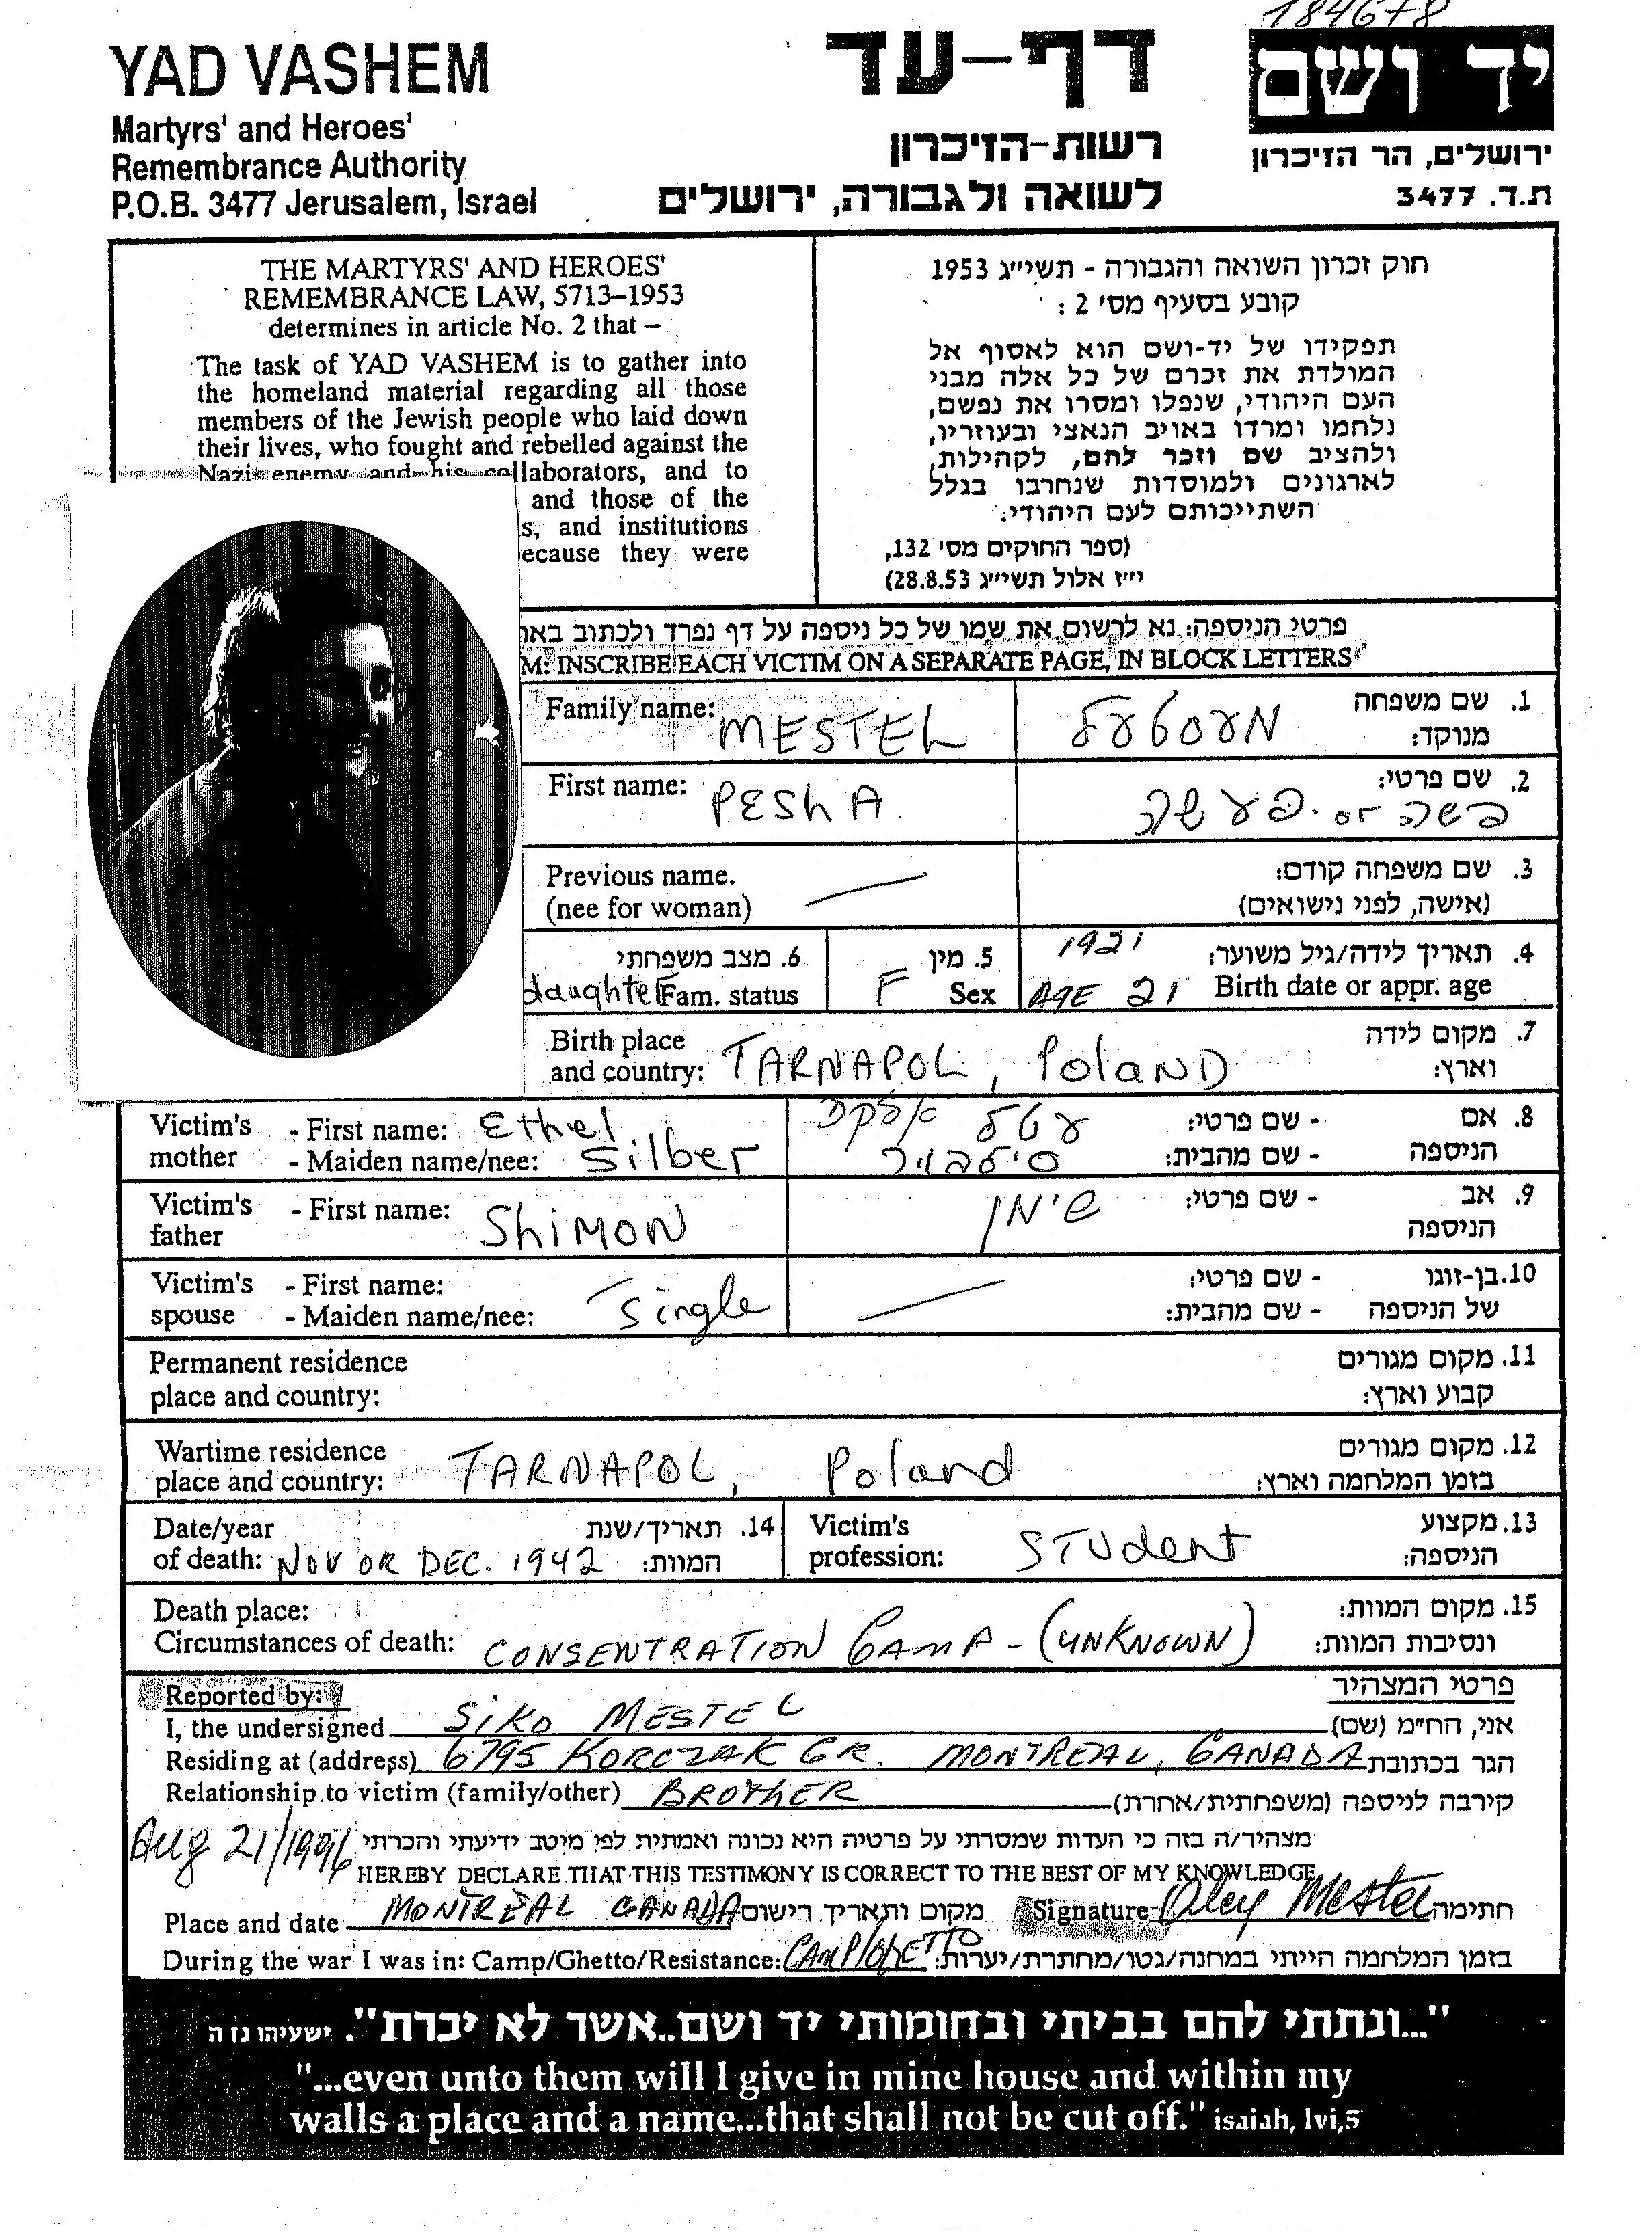 184678
YAD VASHEM
Martyrs' and Heroes'
Remembrance Authority
P.O.B. 3477 Jerusalem, Israel
דף-עד
רשות-הזיכרון
לשואה ולגבורה, ירושלים
יד ושם
ירושלים, הר הזיכרון
ת.ד. 3477
THE MARTYRS' AND HEROES'
REMEMBRANCE LAW, 5713–1953
determines in article No. 2 that –
The task of YAD VASHEM is to gather into
the homeland material regarding all those
members of the Jewish people who laid down
their lives, who fought and rebelled against the
Nazi enemy and his collaborators, and to
and those of the
s, and institutions
ecause they were
חוק זכרון השואה והגבורה - תשי״ג 1953
קובע בסעיף מס' 2 :
תפקידו של יד-ושם הוא לאסוף אל
המולדת את זכרם של כל אלה מבני
העם היהודי, שנפלו ומסרו את נפשם,
נלחמו ומרדו באויב הנאצי ובעוזריו,
ולהציב שם וזכר להם, לקהילות,
לארגונים ולמוסדות שנחרבו בגלל
השתייכותם לעם היהודי.
(ספר החוקים מס' 132,
י״ז אלול תשי״ג 28.8.53)
פרטי הניספה: נא לרשום את שמו של כל ניספה על דף נפרד ולכתוב באו
M: INSCRIBE EACH VICTIM ON A SEPARATE PAGE, IN BLOCK LETTERS
Family name: MESTEL מעסטעל 1. שם משפחה
מנוקד:
First name: PEShA פשה or פעשה 2. שם פרטי:
Previous name. 3. שם משפחה קודם:
(nee for woman) (אישה, לפני נישואים)
6. מצב משפחתי 5. מין 1921 4. תאריך לידה/גיל משוער:
daughter Fam. status F Sex AGE 21 Birth date or appr. age
Birth place 7. מקום לידה
and country: TARNAPOL, PolaND וארץ:
Victim's - First name: Ethel עטל - שם פרטי: 8. אם
mother - Maiden name/nee: Silber - שם מהבית: הניספה
Victim's - First name: ShiMON שימון - שם פרטי: 9. אב
father הניספה
Victim's - First name: - שם פרטי: 10. בן-זוגו
spouse - Maiden name/nee: Single - שם מהבית: של הניספה
Permanent residence 11. מקום מגורים
place and country: קבוע וארץ:
Wartime residence 12. מקום מגורים
place and country: TARNAPOL, Poland בזמן המלחמה וארץ:
Date/year 14. תאריך/שנת Victim's 13. מקצוע
of death: NOV OR DEC. 1942 המוות: profession: STUdent הניספה:
Death place: 15. מקום המוות:
Circumstances of death: CONSENTRATION CAMP - (UNKNOWN) ונסיבות המוות:
Reported by: פרטי המצהיר
I, the undersigned SiKO MESTEL אני, הח״מ (שם)
Residing at (address) 6795 KORCZAK CR. MONTREAL, CANADA הגר בכתובת
Relationship to victim (family/other) BROTHER קירבה לניספה (משפחתית/אחרת)
Aug 21/1996 מצהיר/ה בזה כי העדות שמסרתי על פרטיה היא נכונה ואמתית לפי מיטב ידיעתי והכרתי
HEREBY DECLARE THAT THIS TESTIMONY IS CORRECT TO THE BEST OF MY KNOWLEDGE
Place and date MONTREAL CANADA מקום ותאריך רישום Signature Mestel חתימה
During the war I was in: Camp/Ghetto/Resistance: CAMP/GHETTO בזמן המלחמה הייתי במחנה/גטו/מחתרת/יערות:
"...ונתתי להם בביתי ובחומותי יד ושם..אשר לא יכרת". ישעיהו נו ה
"...even unto them will I give in mine house and within my
walls a place and a name...that shall not be cut off." isaiah, lvi,5